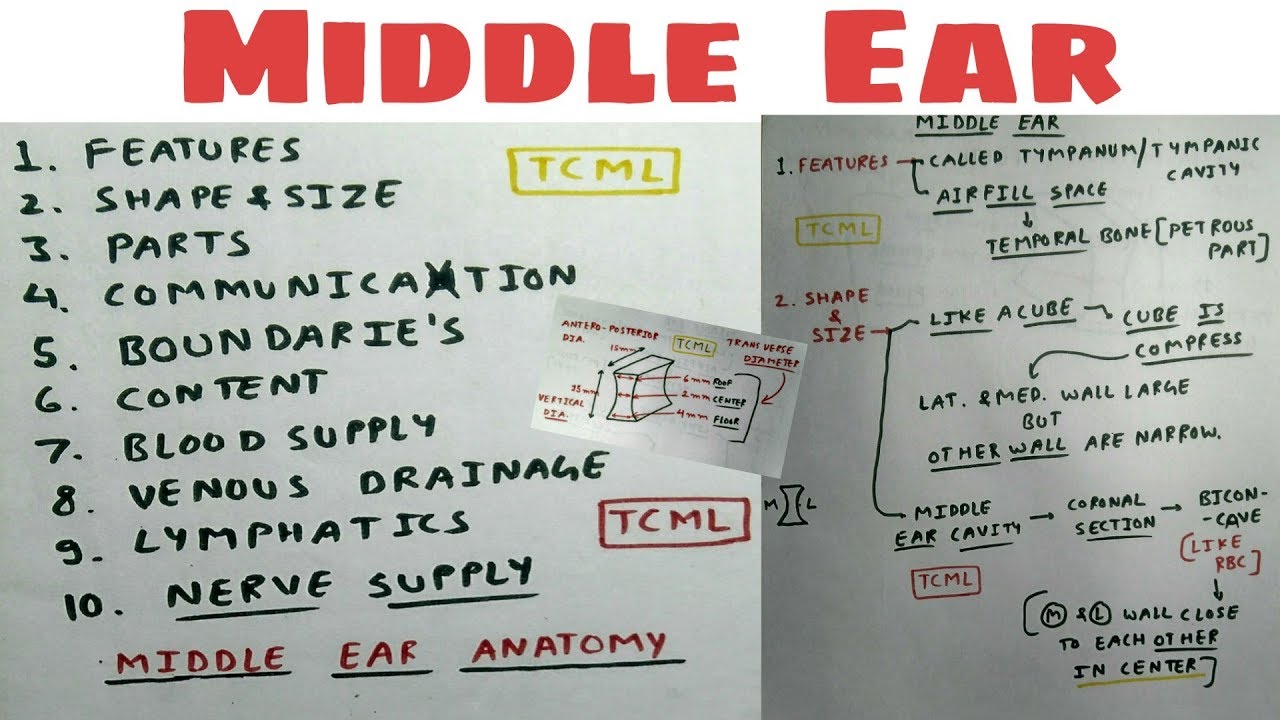 MIDDLE EAR
1. FEATURES
TCML
2. SHAPE & SIZE
3. PARTS
4. COMMUNICATION
5. BOUNDARIE'S
6. CONTENT
7. BLOOD SUPPLY
8. VENOUS DRAINAGE
9. LYMPHATICS
TCML
10. NERVE SUPPLY
MIDDLE EAR ANATOMY
ANTERO-POSTERIOR
DIA.
15mm
TCML
TRANSVERSE
DIAMETER
15mm
VERTICAL
DIA.
6mm ROOF
2mm CENTER
4mm FLOOR
MIDDLE EAR
1. FEATURES → CALLED TYMPANUM/TYMPANIC
CAVITY
AIRFILL SPACE
↓
TCML
TEMPORAL BONE [PETROUS
PART]
2. SHAPE
&
SIZE → LIKE A CUBE → CUBE IS
COMPRESS
LAT. & MED. WALL LARGE
BUT
OTHER WALL ARE NARROW.
M L
MIDDLE
EAR CAVITY → CORONAL
SECTION → BICON-
-CAVE
[LIKE
RBC]
TCML
↓
[M & L WALL CLOSE
TO EACH OTHER
IN CENTER]